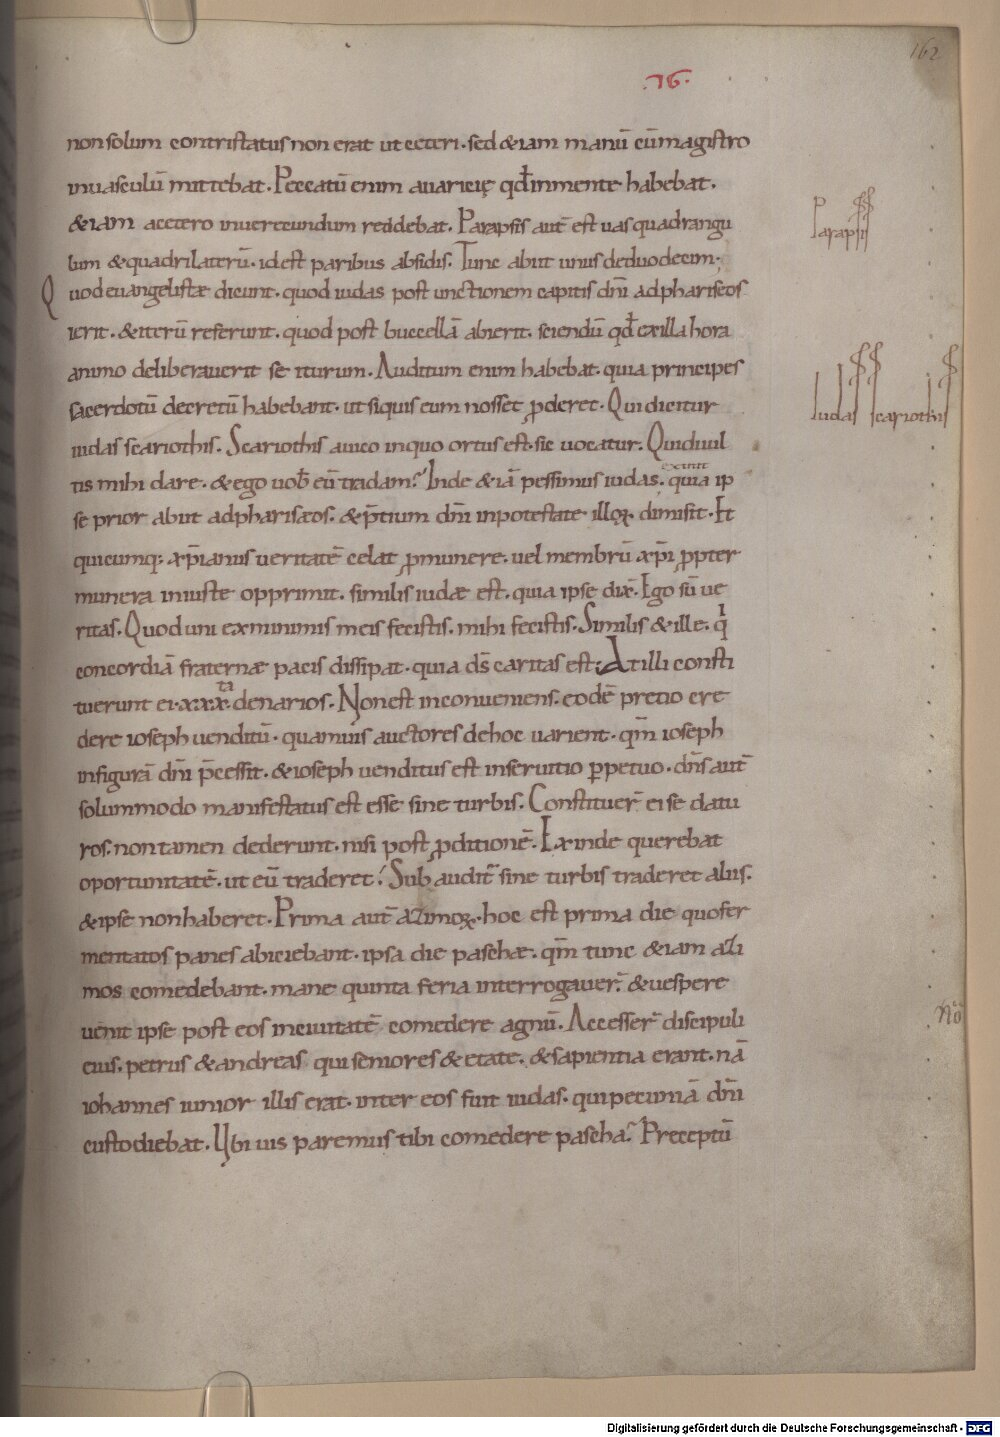 162
.76.
non solum contristatus non erat ut ceteri. sed &iam manū cū magistro
in uasculū mittebat. Peccatū enim auaricię qđ in mente habebat.
&iam a cetero inuerecundum reddebat. Parapsis autē est uas quadrangu
lum & quadrilaterū. id est paribus absidis. Tunc abiit unus de duodecim.
Quod euangelistæ dicunt. quod iudas post unctionem capitis dn̄i ad phariseos
ierit. & iterū referunt. quod post buccellā abierit. sciendū qđ ex illa hora
animo deliberauerit se iturum. Auditum enim habebat. quia principes
sacerdotū decretū habebant. ut siquis eum nosset ꝓderet. Qui dicitur
iudas scariothis. Scariothis a uico in quo ortus est. sic uocatur. Quid uul
tis mihi dare. & ego uob̄ eū tradam? Inde &iā pessimus iudas. quia ip
se prior abiit ad pharisæos. & p̄tium dn̄i in potestate illoꝝ dimisit. Et
quicumq; xp̄ianus ueritatē celat ꝓ munere. uel membrū xp̄i ꝓpter
munera iniuste opprimit. similis iudæ est. quia ipse dix̄. Ego sū ue
ritas. Quod uni ex minimis meis fecistis. mihi fecistis. Similis & ille. qͥ
concordiā fraternæ pacis dissipat. quia ds̄ caritas est. At illi consti
tuerunt ei .xxx.ta denarios. Non est inconueniens. eodē precio cre
dere ioseph uenditū. quamuis auctores de hoc uarient. qm̄ ioseph
in figurā dn̄i p̄cessit. & ioseph uenditus est in seruitio ꝑpetuo. dn̄s autē
solummodo manifestatus est esse sine turbis. Constituer̄ ei se datu
ros. non tamen dederunt. nisi post ꝓditionē. Exinde querebat
oportunitatē. ut eū traderet. Sub audit̄ sine turbis traderet aliis.
& ipse non haberet. Prima autē azimoꝝ. hoc est prima die quo fer
mentatos panes abiciebant. ipsa die paschæ. qm̄ tunc &iam azi
mos comedebant. mane quinta feria interrogauer̄. & uespere
uenit ipse post eos in ciuitatē comedere agnū. Accesser̄ discipuli
eius. petrus & andreas qui seniores & etate. & sapientia erant. nā
iohannes iunior illis erat. inter eos fuit iudas. qui pecuniā dn̄i
custodiebat. Ubi uis paremus tibi comedere pascha? Preceptū
Parapsis
Iudas scariothis
Digitalisierung gefördert durch die Deutsche Forschungsgemeinschaft - DFG